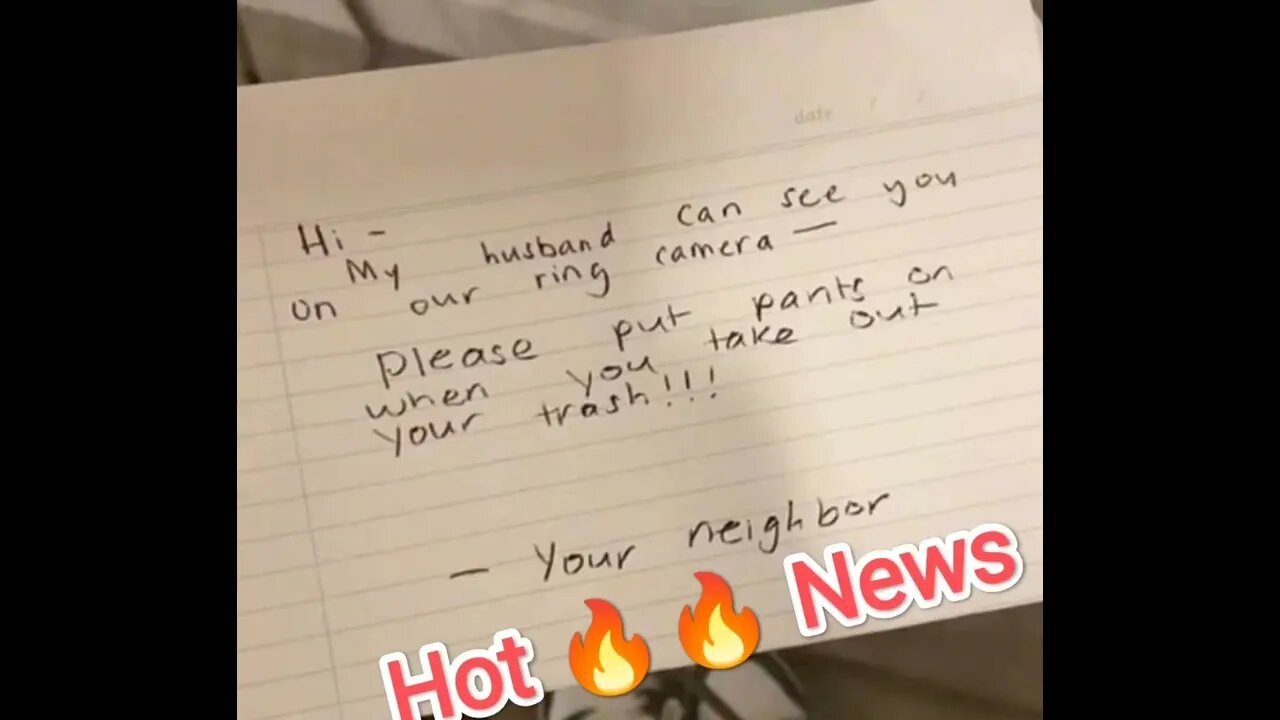 date / /
Hi -
My husband can see you
on our ring camera —
please put pants on
when you take out
your trash!!!
— Your neighbor
Hot 🔥🔥 News